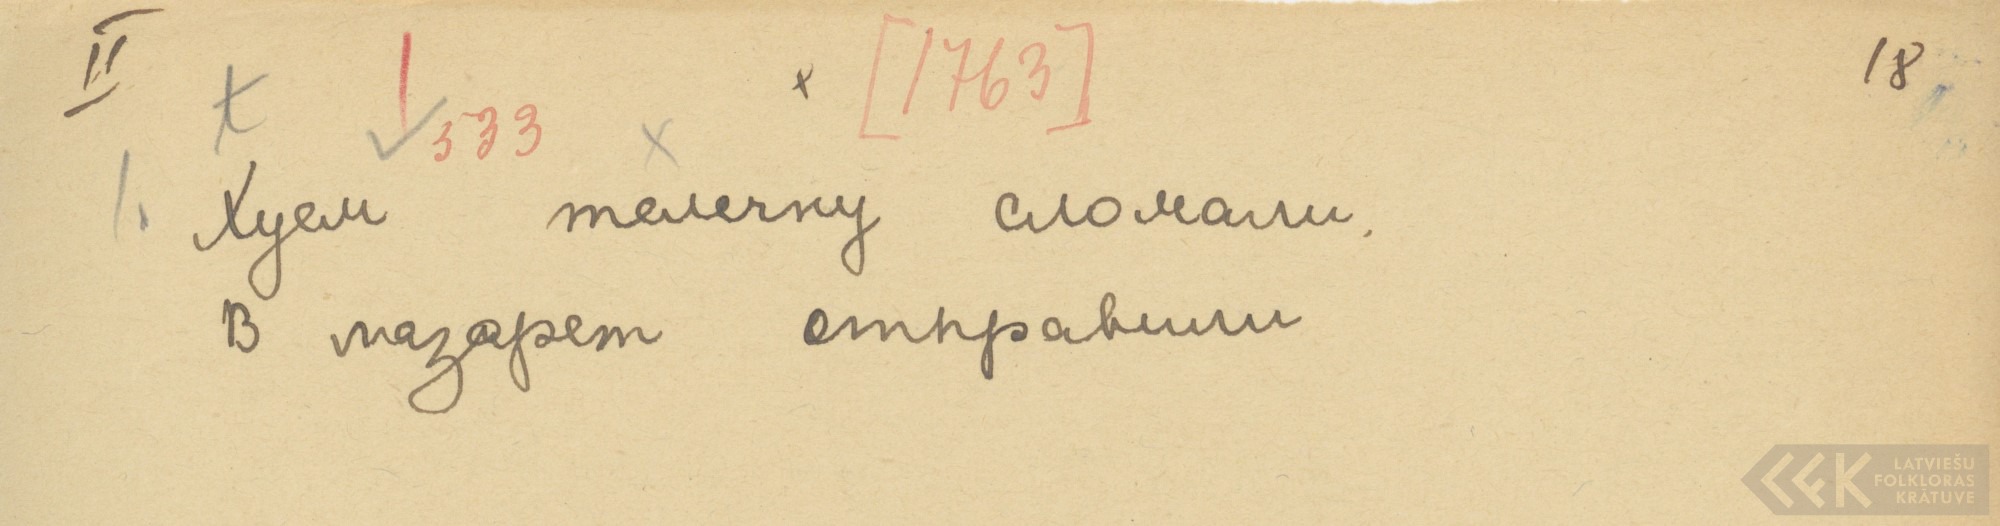 II [1763] 18
533
1. Хуем телечку сломали.
В лазарет отправили
LATVIEŠU
FOLKLORAS
KRĀTUVE